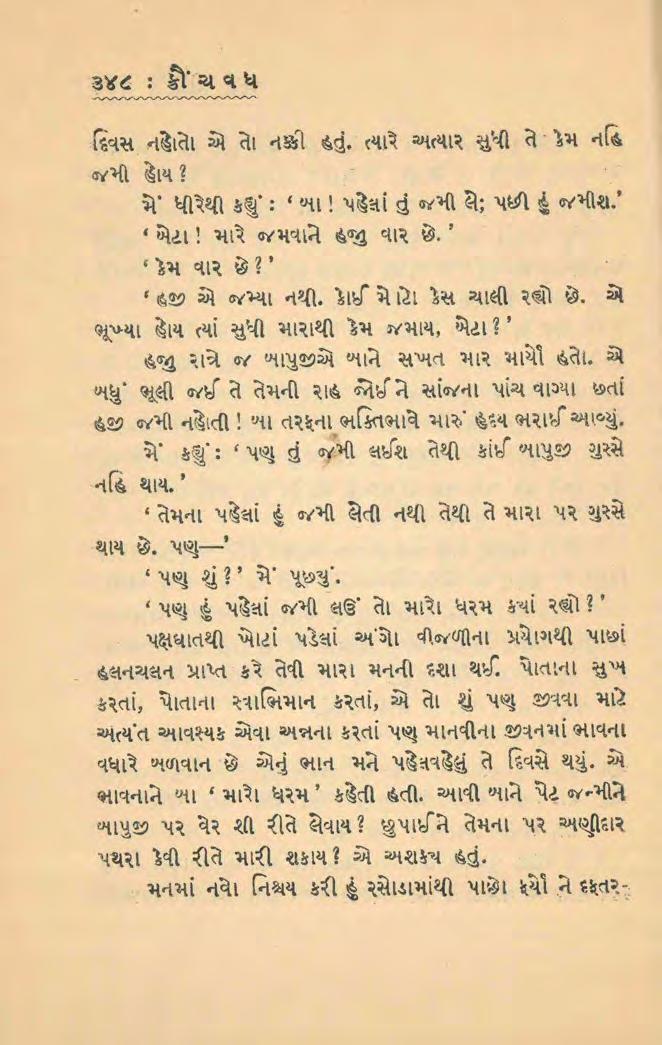 ૩૪૮ : ક્રૌંચવધ
દિવસ નહોતો એ તો નક્કી હતું. ત્યારે અત્યાર સુધી તે કેમ નહિ
જમી હોય ?
મેં ધીરેથી કહ્યું : ‘ બા ! પહેલાં તું જમી લે; પછી હું જમીશ.’
‘ બેટા ! મારે જમવાને હજુ વાર છે. ’
‘ કેમ વાર છે ? ’
‘ હજી એ જમ્યા નથી. કોઈ મોટો કેસ ચાલી રહ્યો છે. એ
ભૂખ્યા હોય ત્યાં સુધી મારાથી કેમ જમાય, બેટા ? ’
હજુ રાત્રે જ બાપુજીએ બાને સખત માર માર્યો હતો. એ
બધું ભૂલી જઈ તે તેમની રાહ જોઈને સાંજના પાંચ વાગ્યા છતાં
હજી જમી નહોતી ! બા તરફના ભક્તિભાવે મારું હૃદય ભરાઈ આવ્યું.
મેં કહ્યું : ‘ પણ તું જમી લઈશ તેથી કાંઈ બાપુજી ગુસ્સે
નહિ થાય. ’
‘ તેમના પહેલાં હું જમી લેતી નથી તેથી તે મારા પર ગુસ્સે
થાય છે. પણ—’
‘ પણ શું ? ’ મેં પૂછ્યું.
‘ પણ હું પહેલાં જમી લઉં તો મારો ધરમ ક્યાં રહ્યો ? ’
પક્ષઘાતથી ખોટાં પડેલાં અંગો વીજળીના પ્રયોગથી પાછાં
હલનચલન પ્રાપ્ત કરે તેવી મારા મનની દશા થઈ. પોતાના સુખ
કરતાં, પોતાના સ્વાભિમાન કરતાં, એ તો શું પણ જીવવા માટે
અત્યંત આવશ્યક એવા અન્નના કરતાં પણ માનવીના જીવનમાં ભાવના
વધારે બળવાન છે એનું ભાન મને પહેલવહેલું તે દિવસે થયું. એ
ભાવનાને બા ‘ મારો ધરમ ’ કહેતી હતી. આવી બાને પેટ જન્મીને
બાપુજી પર વેર શી રીતે લેવાય ? છુપાઈને તેમના પર અણીદાર
પથરા કેવી રીતે મારી શકાય ? એ અશક્ય હતું.
મનમાં નવો નિશ્ચય કરી હું રસોડામાંથી પાછો ફર્યો ને દફતર-